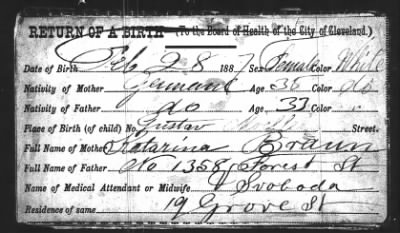 RETURN OF A BIRTH (To the Board of Health of the City of Cleveland.)
Date of Birth Feb 28 188 Sex Female Color White
Nativity of Mother Germany Age 30 Color do
Nativity of Father do Age 33 Color "
Place of Birth (of child) No. Gustav Street.
Full Name of Mother Katarina Braun
Full Name of Father No 1358 Forest St
Name of Medical Attendant or Midwife Svoboda
Residence of same 19 Grove St